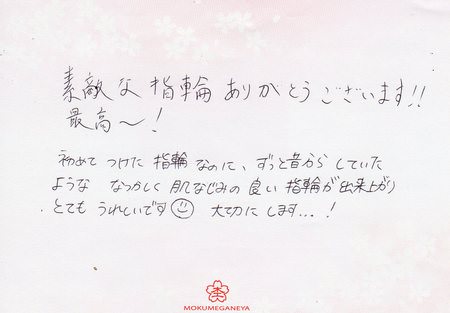 素敵な指輪ありがとうございます!!
最高〜!
初めてつけた指輪なのに、ずっと昔からしていた
ような なつかしく 肌なじみの良い 指輪が出来上がり
とても うれしいです☺ 大切にします...!
MOKUMEGANEYA